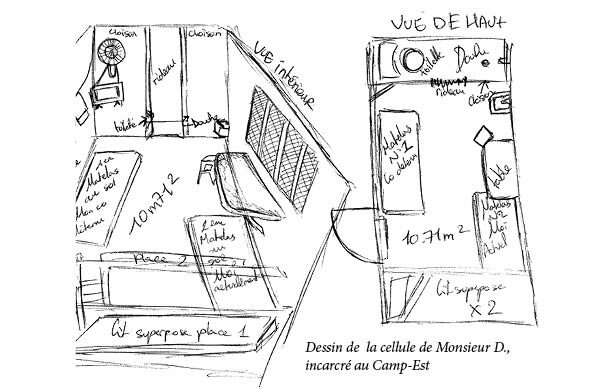 VUE DE HAUT
cloison
cloison
rideau
toilette
Douche
VUE intérieur
1er
Matelas
au sol
Mon co
détenu
10m71²
2em
Matelas
au
sol
Moi
actuellement
Place 2
Lit superpose place 1
toilette
Douche
rideau
cloison
Matelas
N°1
Co détenu
table
Matelas
N°2
Moi
Actuel
10.71m²
Lit superpose
x 2
Dessin de la cellule de Monsieur D.,
incarcré au Camp-Est